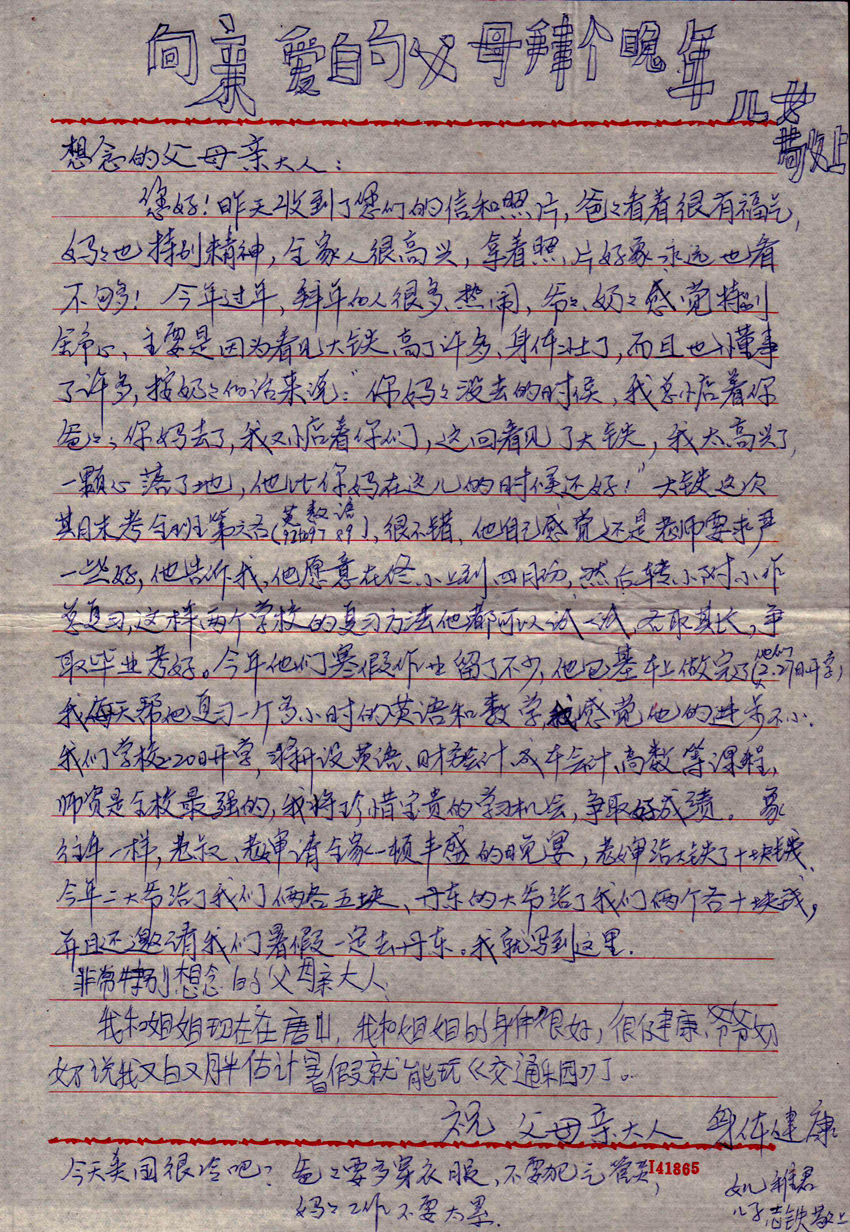 向亲爱的父母拜个晚年
儿女
敬上
想念的父母亲大人：
您好！昨天收到了您们的信和照片，爸々看着很有福气，
妈々也特别精神，全家人很高兴，拿着照片好象永远也看
不够！今年过年，拜年的人很多、热闹，爷々、奶々感觉特别
舒心，主要是因为看见大铁高了许多、身体壮了，而且也懂事
了许多，按奶々的话来说：“你妈々没去的时候，我总惦着你
爸々，你妈去了，我又惦着你们，这回看见了大铁，我太高兴了，
一颗心落了地，他比你妈在这儿的时候还好！”大铁这次
期末考全班第六名(英92 数97 语89)，很不错，他自己感觉还是老师要求严
一些好，他告诉我，他愿意在终小上到四月份，然后转小附小作
总复习，这样两个学校的复习方法他都可以试一试，各取其长，争
取毕业考好。今年他们寒假作业留了不少，他已基本上做完了(他们2.27日开学)
我每天帮他复习一个多小时的英语和数学，感觉他的进步不小。
我们学校2.20日开学，将开设英语、财会会计、成本会计、高数等课程，
师资是全校最强的，我将珍惜宝贵的学习机会，争取好成绩。象
往年一样，老叔、老婶请全家一顿丰盛的晚宴，老婶给大铁了十块钱、
今年二大爷给了我们俩各五块、丹东的大爷给了我们俩个各十块钱，
并且还邀请我们暑假一定去丹东。我就写到这里.
非常特别想念的父母亲大人：
我和姐姐现在在唐山，我和姐姐的身体很好，很健康、爷爷奶
奶说我又白又胖估计暑假就能玩《交通乐园》了。
祝 父母亲大人 身体健康
今天美国很冷吧？爸々要多穿衣服，不要犯气管炎，
I41865
妈々工作不要太累.
女儿 雅君
儿子志铁敬上